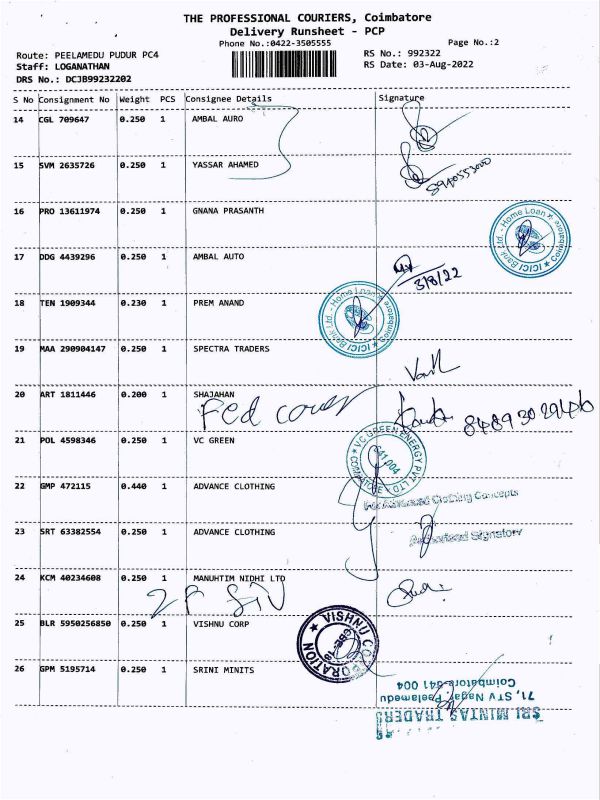 THE PROFESSIONAL COURIERS, Coimbatore
Delivery Runsheet - PCP
Phone No.:0422-3505555
Page No.:2
Route: PEELAMEDU PUDUR PC4
RS No.: 992322
Staff: LOGANATHAN
RS Date: 03-Aug-2022
DRS No.: DCJB99232202
S No Consignment No Weight PCS Consignee Details Signature
14 CGL 709647 0.250 1 AMBAL AURO
15 SVM 2635726 0.250 1 YASSAR AHAMED
16 PRO 13611974 0.250 1 GNANA PRASANTH
ICICI Bank Ltd. - Home Loan ★ Coimbatore
17 DDG 4439296 0.250 1 AMBAL AUTO
3/8/22
18 TEN 1909344 0.230 1 PREM ANAND
ICICI Bank Ltd. - Home Loan ★ Coimbatore
19 MAA 290904147 0.250 1 SPECTRA TRADERS
20 ART 1811446 0.200 1 SHAJAHAN
Fed cover
21 POL 4598346 0.250 1 VC GREEN
VC GREEN ENERGY PVT LTD
COIMBATORE
641 004
22 GMP 472115 0.440 1 ADVANCE CLOTHING
For Advanced Clothing Concepts
23 SRT 63382554 0.250 1 ADVANCE CLOTHING
Authorised Signatory
24 KCM 40234608 0.250 1 MANUHTIM NIDHI LTD
25 BLR 5950256850 0.250 1 VISHNU CORP
★ VISHNU CORPORATION
CBE-18
26 GPM 5195714 0.250 1 SRINI MINITS
SRI MINTAS TRADERS
71, STV Nagar, Peelamedu
Coimbatore-641 004